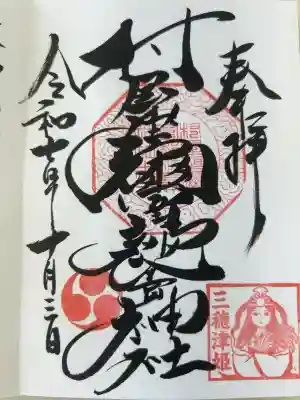 奉拝
村屋坐彌冨都比賣神社
令和七年十月三日
三穂津姫